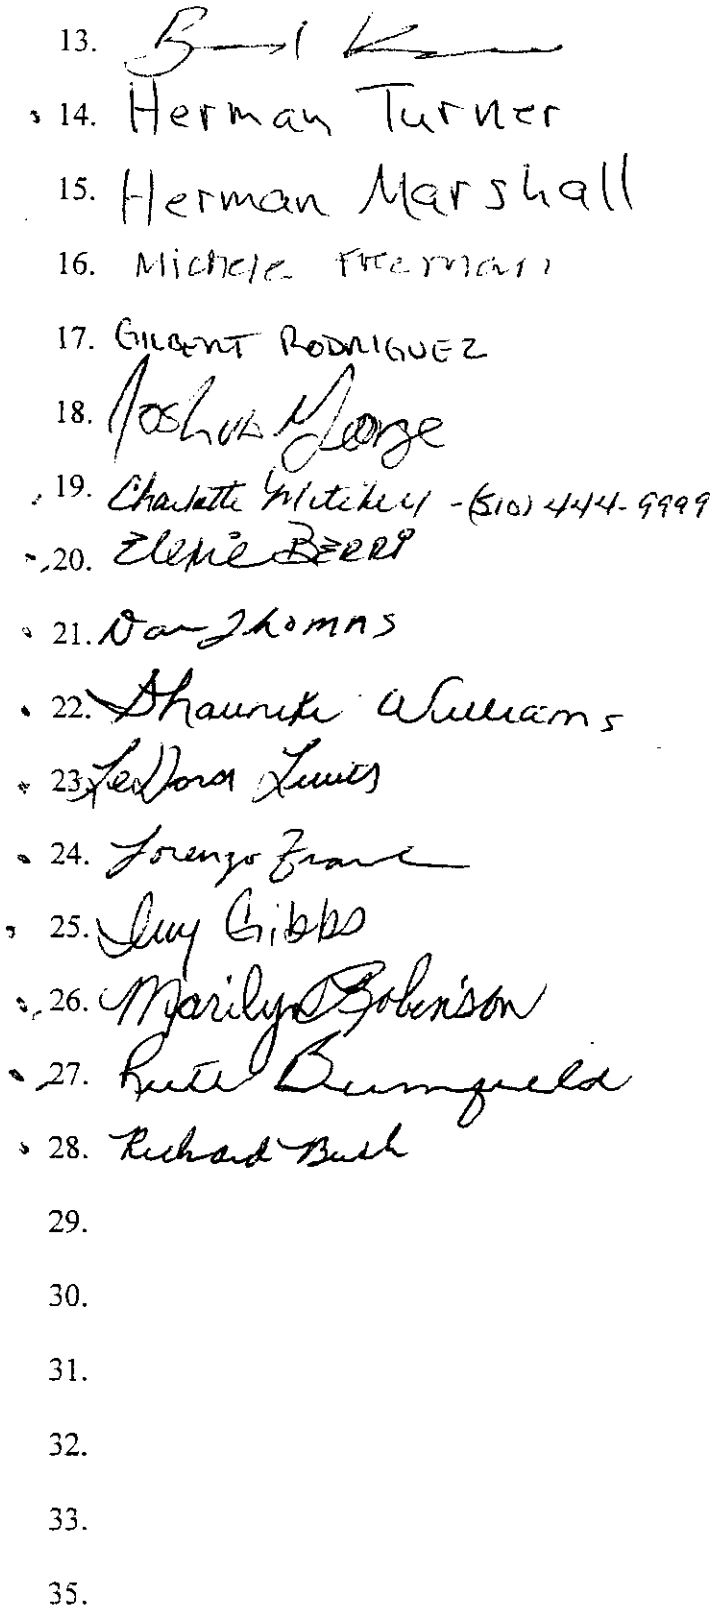 13.
14. Herman Turner
15. Herman Marshall
16. Michele Freeman
17. GILBERT RODRIGUEZ
18. Joshua George
19. Charlotte Mitchell - (510) 444-9999
20. BERRY
21. Dan Thomas
22. Williams
23. LeDora Lewis
24. Lorenzo Frank
25. Guy Gibbs
26. Marilyn Robinson
27. Bumgfield
28. Richard Bush
29.
30.
31.
32.
33.
35.